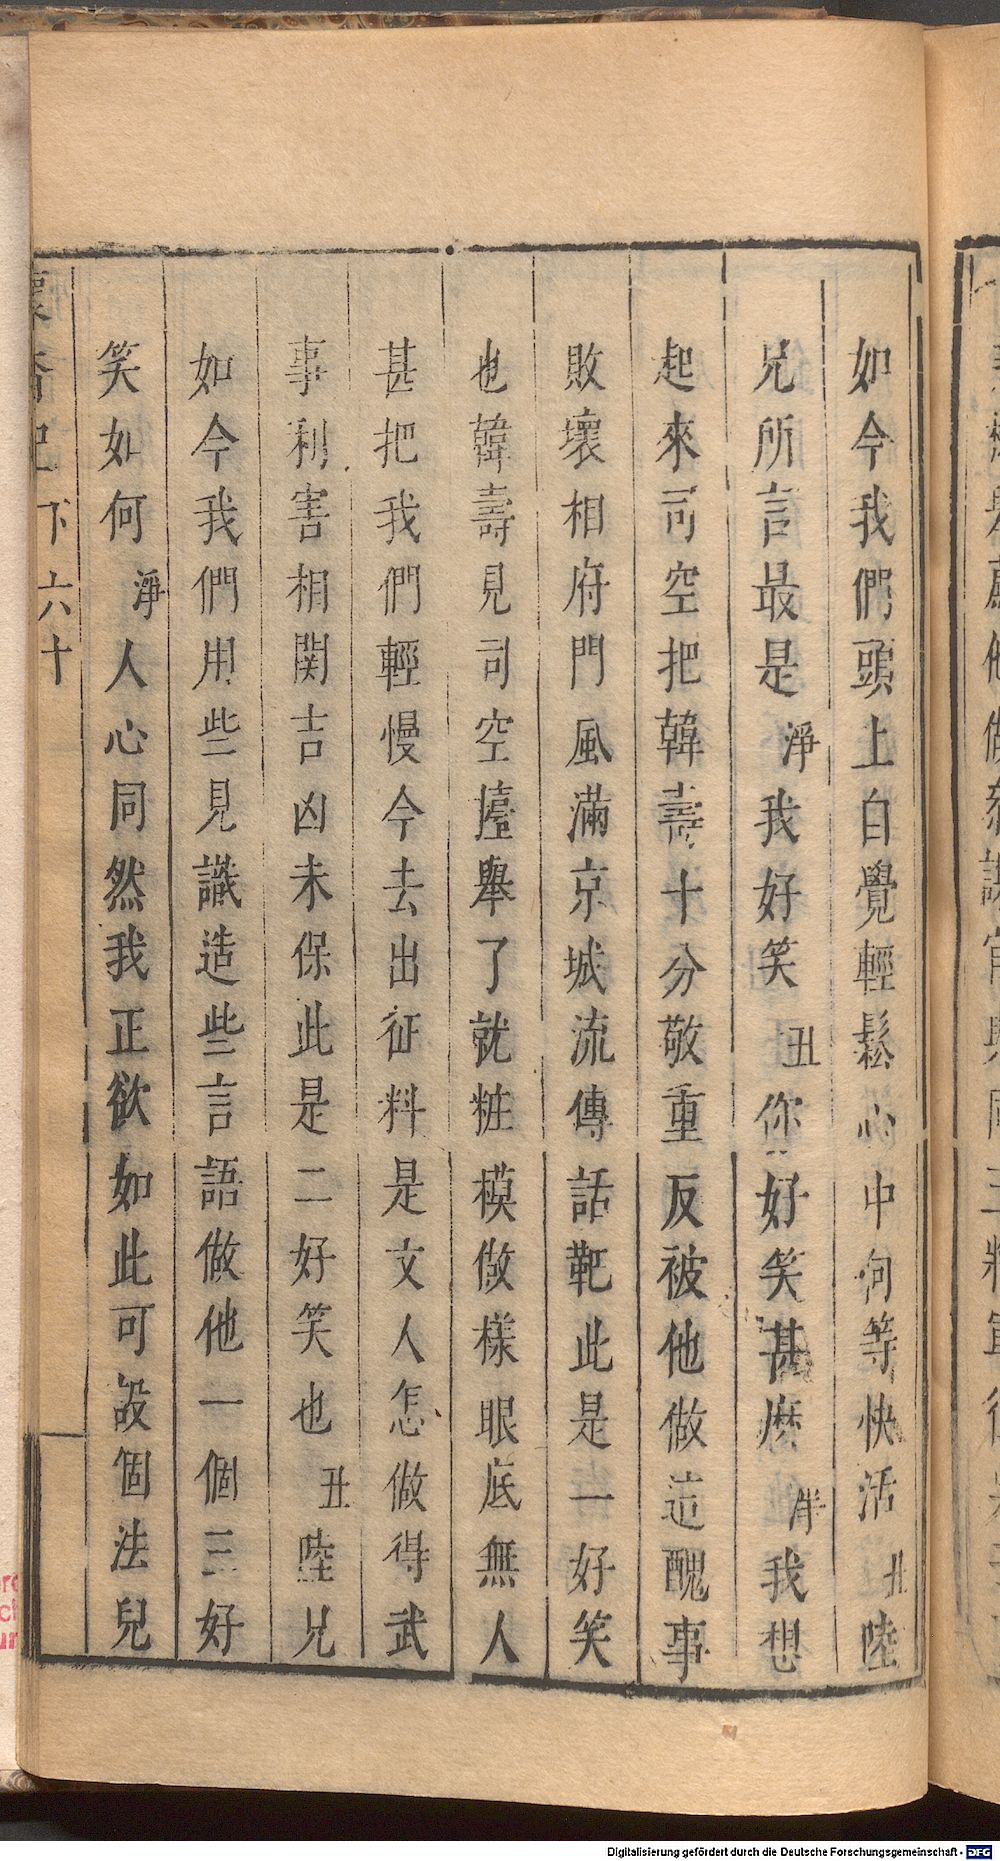 如今我們頭上自覺輕鬆心中何等快活丑陸
兄所言最是淨我好笑丑你好笑甚麽淨我想
起來司空把韓壽十分敬重反被他做這醜事
敗壞相府門風滿京城流傳話靶此是一好笑
也韓壽見司空擡舉了就粧模做樣眼底無人
甚把我們輕慢今去出征料是文人怎做得武
事利害相関吉凶未保此是二好笑也丑陸兄
如今我們用些見識造些言語做他一個三好
笑如何淨人心同然我正欲如此可設個法兒
懷香記 下 六十
Digitalisierung gefördert durch die Deutsche Forschungsgemeinschaft - DFG